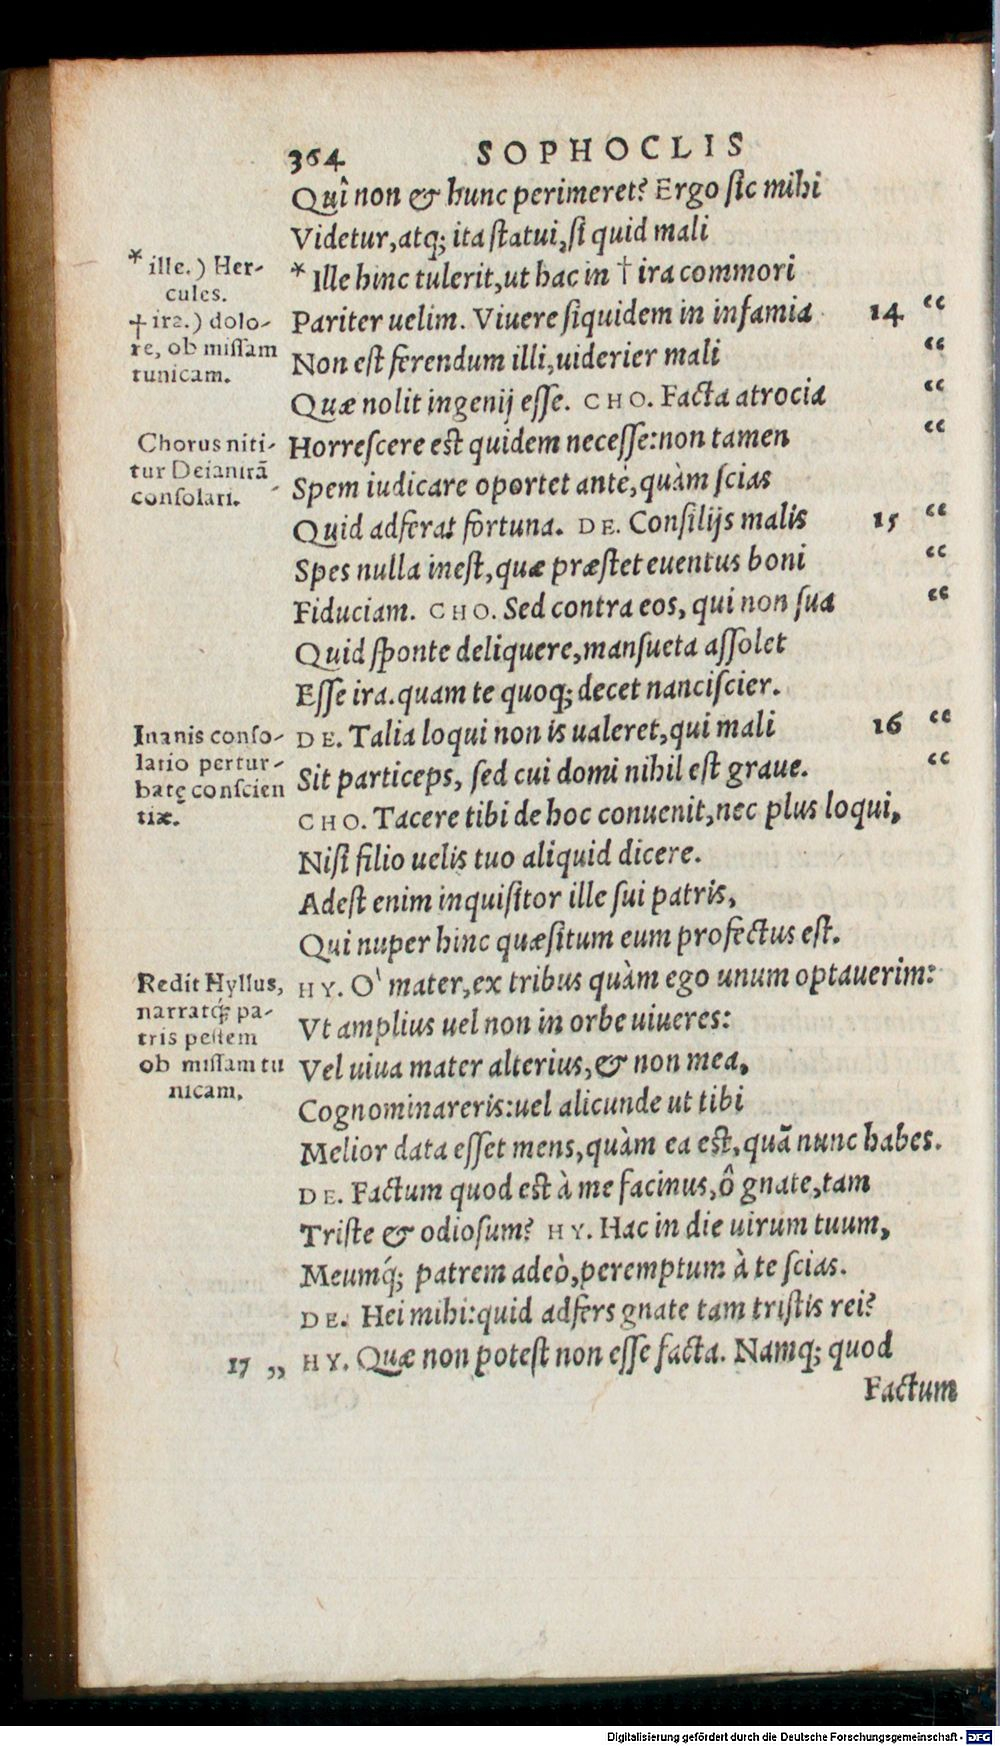 364 SOPHOCLIS
Quî non & hunc perimeret? Ergo ſic mihi
Videtur,atq; ita ſtatui,ſi quid mali
* Ille hinc tulerit,ut hac in † ira commori
Pariter uelim. Viuere ſiquidem in infamia 14 “
Non eſt ferendum illi,uiderier mali “
Quæ nolit ingenij eſſe. CHO. Facta atrocia “
Horreſcere eſt quidem neceſſe:non tamen “
Spem iudicare oportet antè,quàm ſcias
Quid adferat fortuna. DE. Conſilijs malis 15 “
Spes nulla ineſt,quæ præſtet euentus boni “
Fiduciam. CHO. Sed contra eos, qui non ſua “
Quid ſponte deliquere,manſueta aſſolet
Eſſe ira.quam te quoq; decet nanciſcier.
DE. Talia loqui non is ualeret,qui mali 16 “
Sit particeps, ſed cui domi nihil eſt graue. “
CHO. Tacere tibi de hoc conuenit,nec plus loqui,
Niſi filio uelis tuo aliquid dicere.
Adeſt enim inquiſitor ille ſui patris,
Qui nuper hinc quæſitum eum profectus eſt.
HY. O` mater,ex tribus quàm ego unum optauerim:
Vt amplius uel non in orbe uiueres:
Vel uiua mater alterius,& non mea,
Cognominareris:uel alicunde ut tibi
Melior data eſſet mens,quàm ea eſt,quã nunc habes.
DE. Factum quod eſt à me facinus,ô gnate,tam
Triſte & odioſum? HY. Hac in die uirum tuum,
Meumq́; patrem adeò,peremptum à te ſcias.
DE. Hei mihi:quid adfers gnate tam triſtis rei?
17 „ HY. Quæ non poteſt non eſſe facta. Namq; quod
Factum
* ille.) Her-
cules.
† ira.) dolo-
re, ob miſſam
tunicam.
Chorus niti-
tur Deianirã
conſolari.
Inanis conſo-
latio pertur-
batę conſcien
tiæ.
Redit Hyllus,
narratq́; pa-
tris peſtem
ob miſſam tu
nicam.
Digitalisierung gefördert durch die Deutsche Forschungsgemeinschaft - DFG